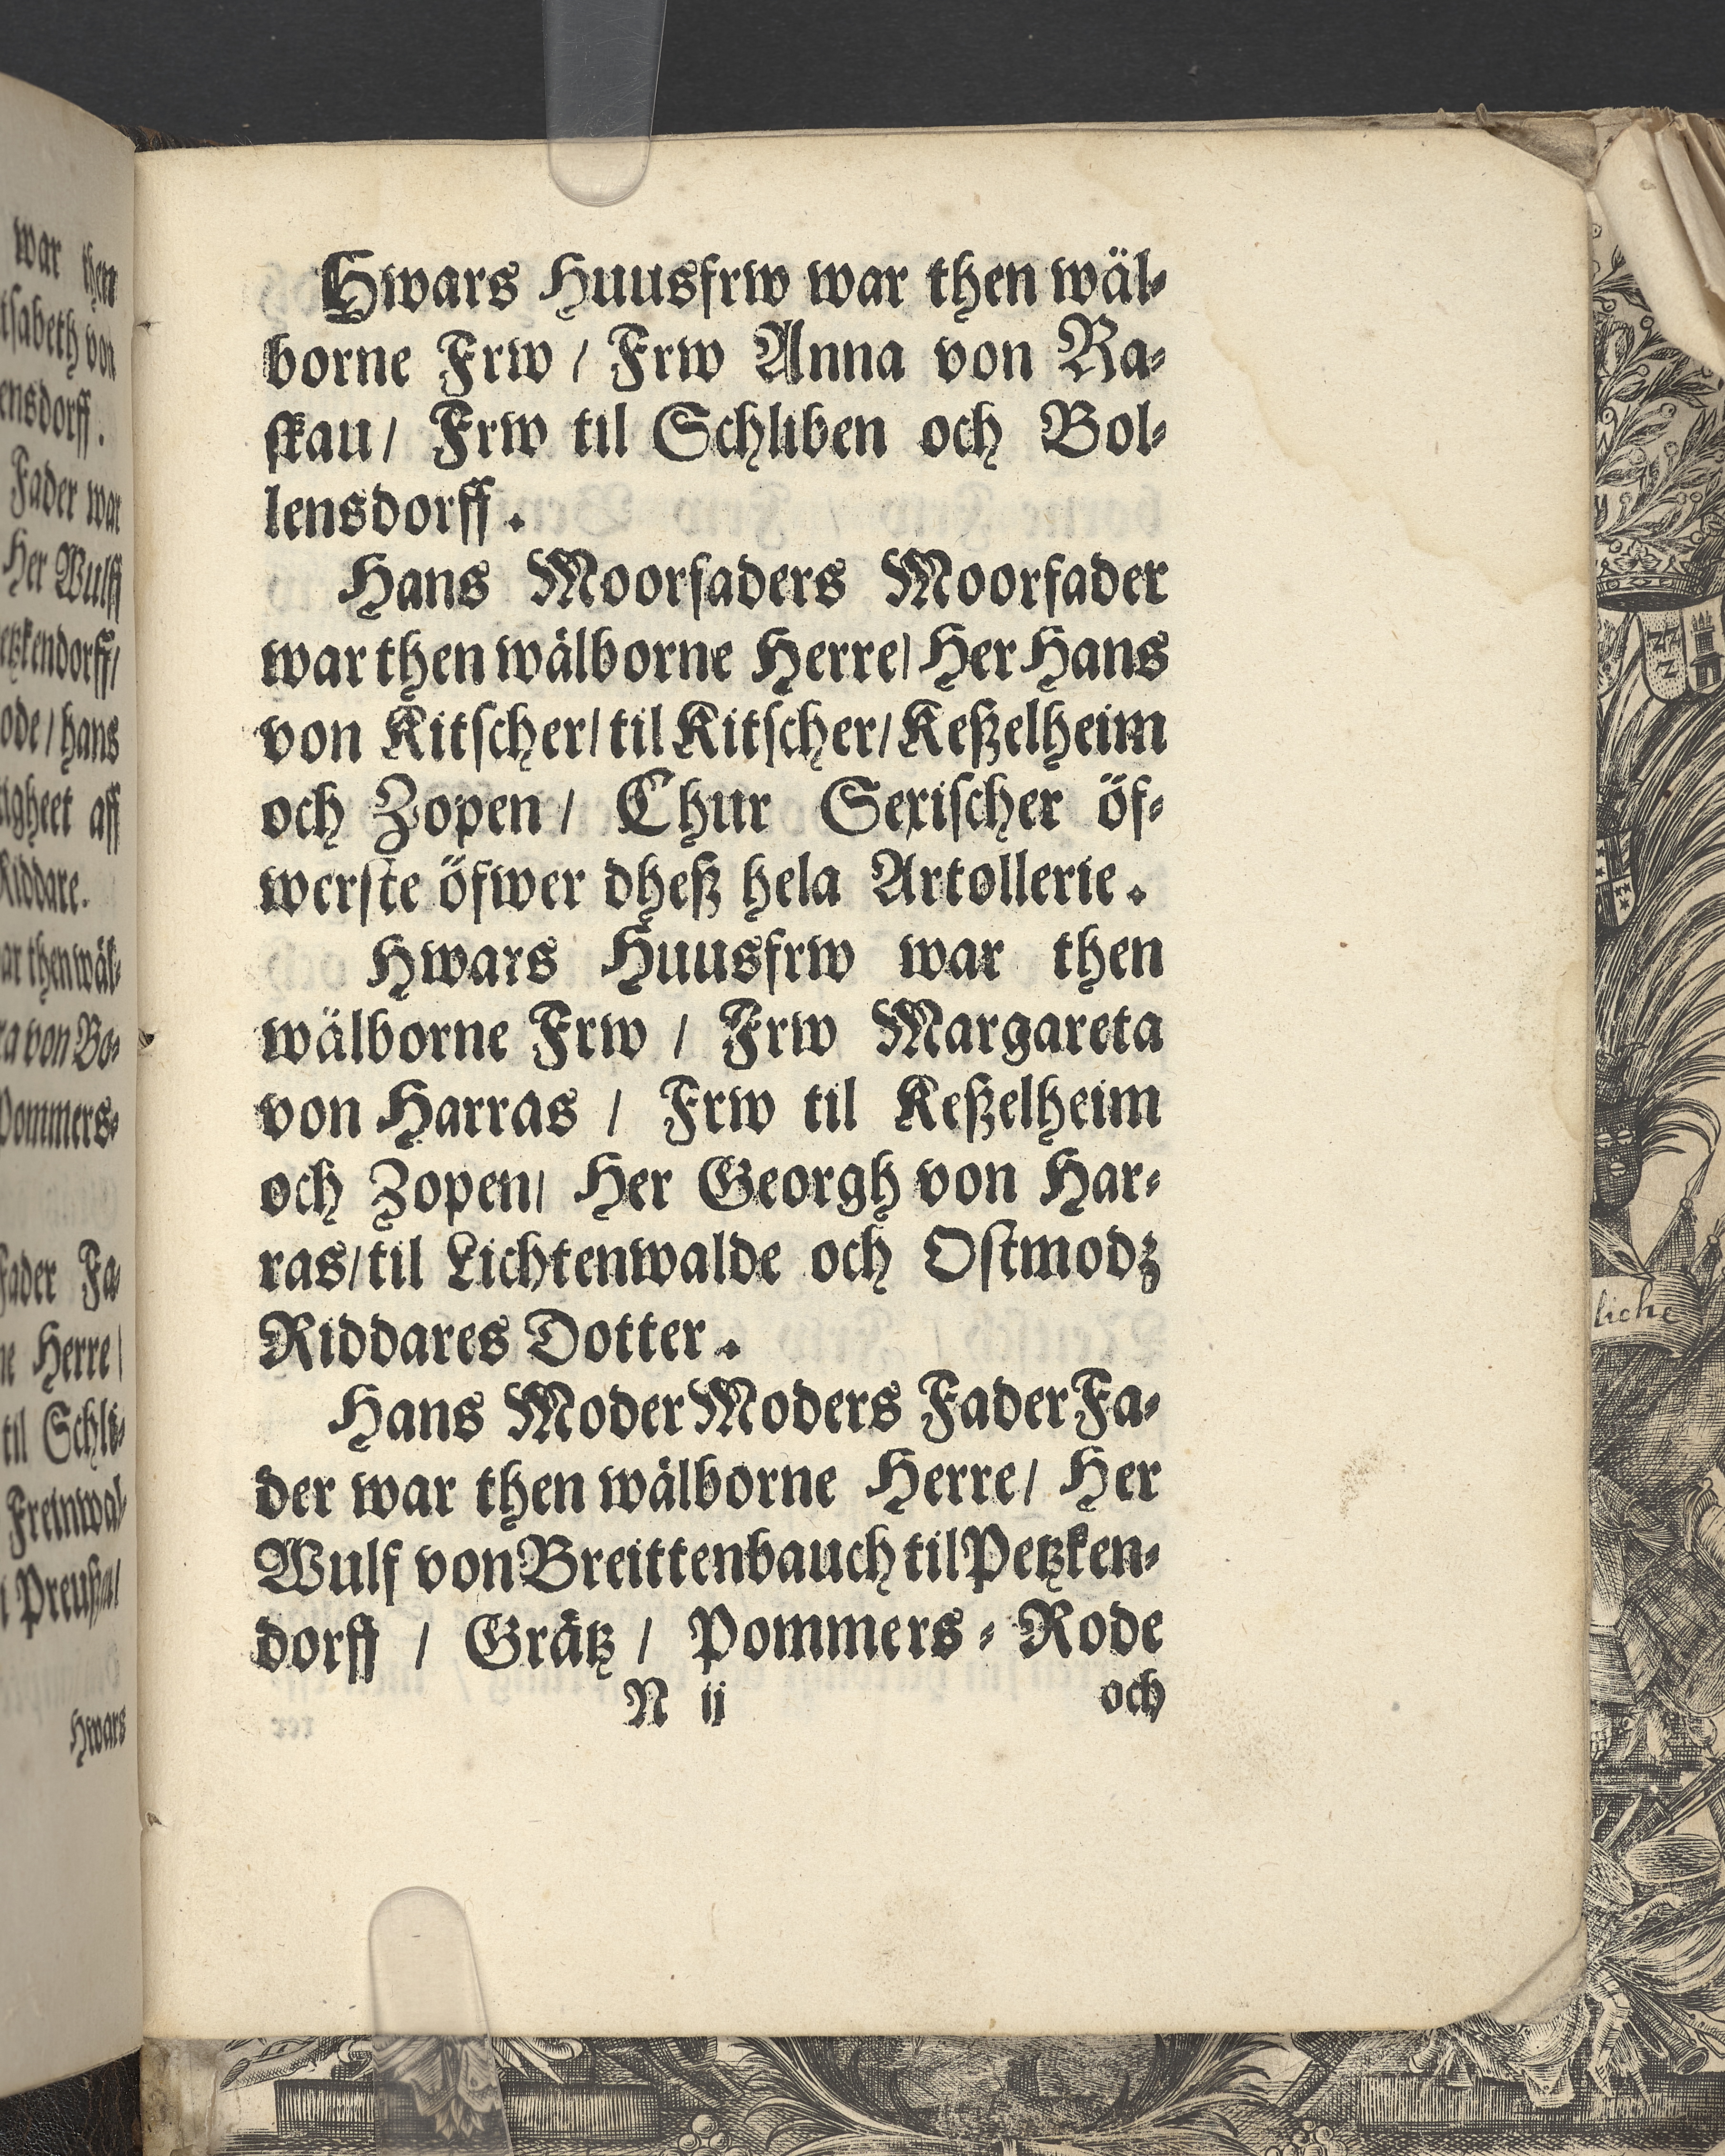 war then
tsabeth von
ensdorff.
Fader war
Her Wulff
etzkendorff/
ode/ hans
igheet aff
Riddare.
ar then wäl-
ra von Bo-
Pommers-
fader Fa-
ne Herre/
til Schli-
Freinwal-
Hwars
Hwars Huusfrw war then wäl-
borne Frw / Frw Anna von Ra-
skau/ Frw til Schliben och Bol-
lensdorff.
Hans Moorfaders Moorfader
war then wälborne Herre/ Her Hans
von Kitscher/ til Kitscher/ Keßelheim
och Zopen/ Chur Sexischer öf-
werste öfwer dheß hela Artollerie.
Hwars Huusfrw war then
wälborne Frw / Frw Margareta
von Harras / Frw til Keßelheim
och Zopen/ Her Georgh von Har-
ras/ til Lichtenwalde och Ostmodz
Riddares Dotter.
Hans Moder Moders Fader Fa-
der war then wälborne Herre/ Her
Wulf von Breittenbauch til Petzken-
dorff / Grätz / Pommers - Rode
N ij och
liche